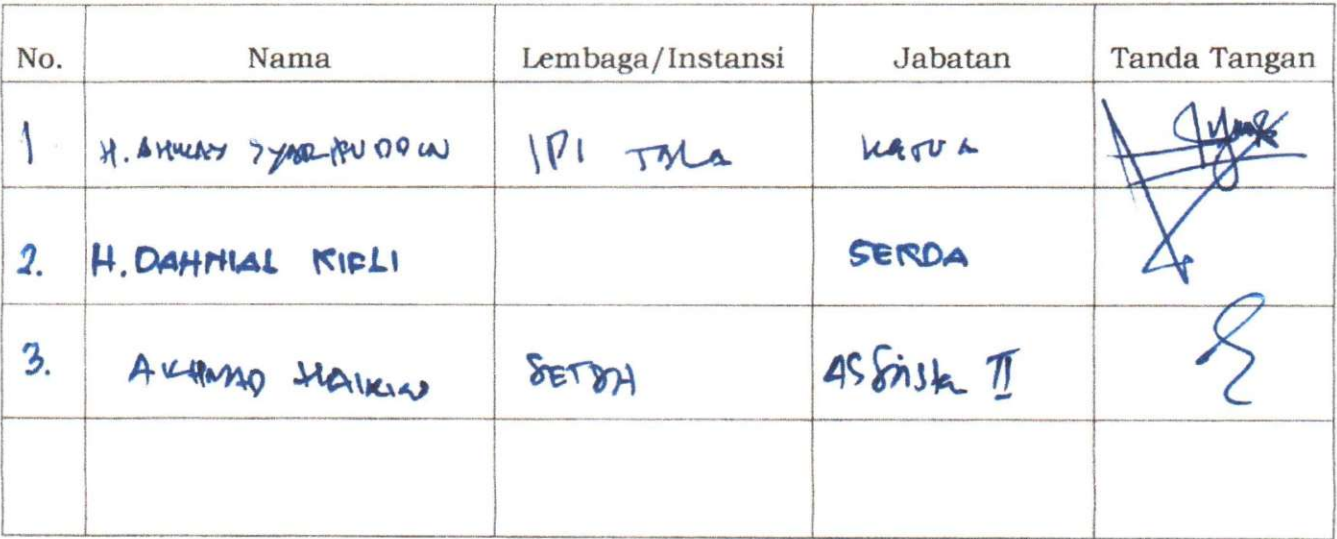 No. Nama Lembaga/Instansi Jabatan Tanda Tangan
1 H. IPI TALA KETUA
2. H. DAHNIAL KIFLI SEKDA
3. AKHMAD HAIRIN SETDA ASISTEN II